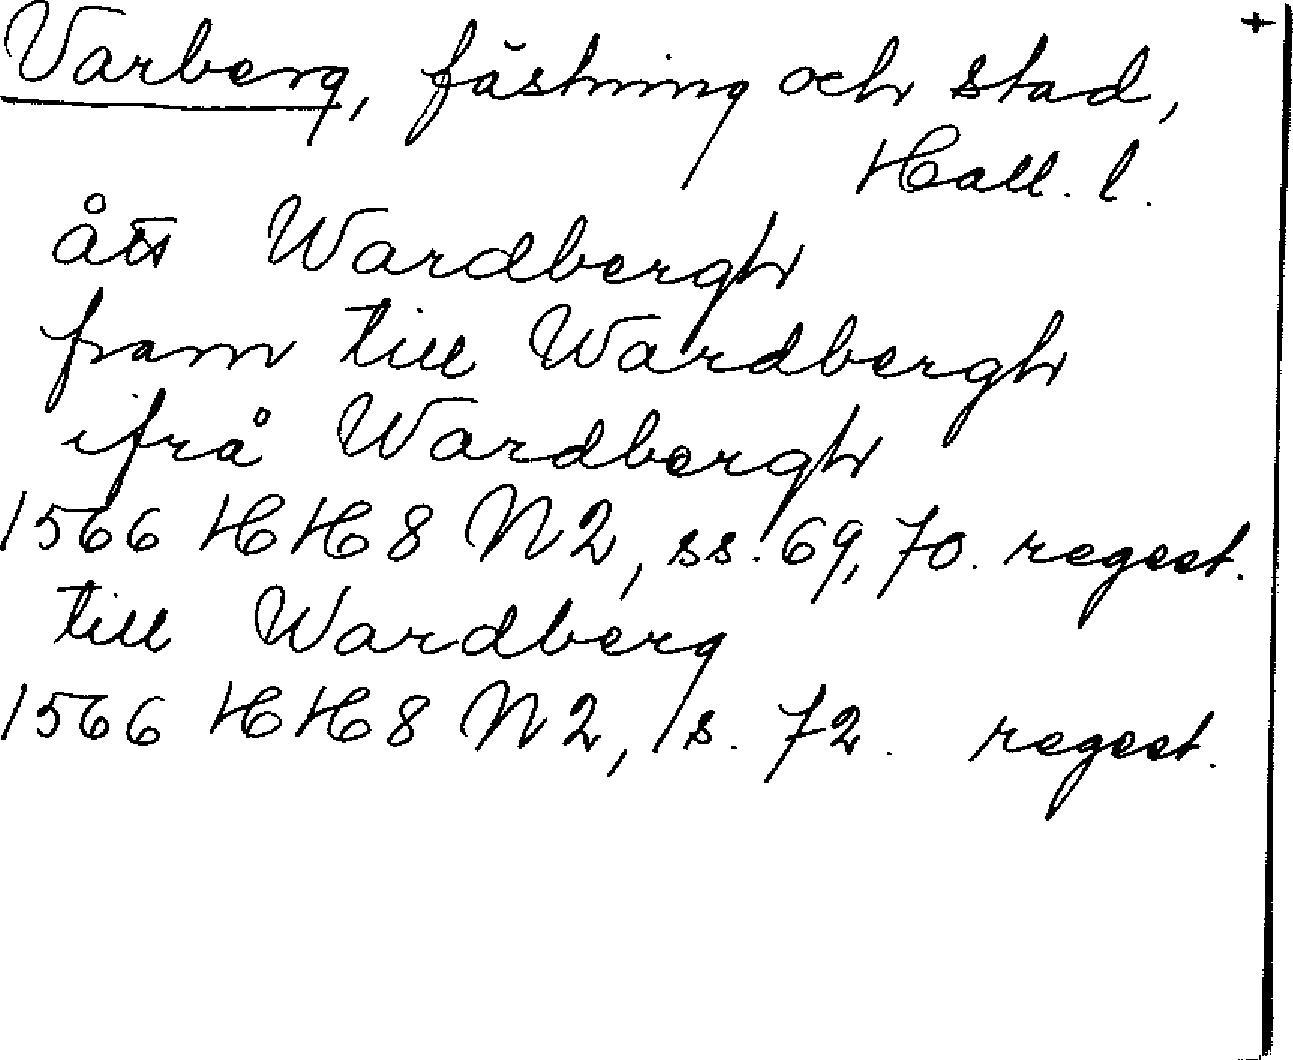 +
Varberg, fästning och stad,
Hall. l.
ått Wardbergh
fram till Wardbergh
ifrå Wardbergh
1566 HH8 N2, ss. 69, 70. regest.
till Wardberg
1566 HH8 N2, s. 72. regest.